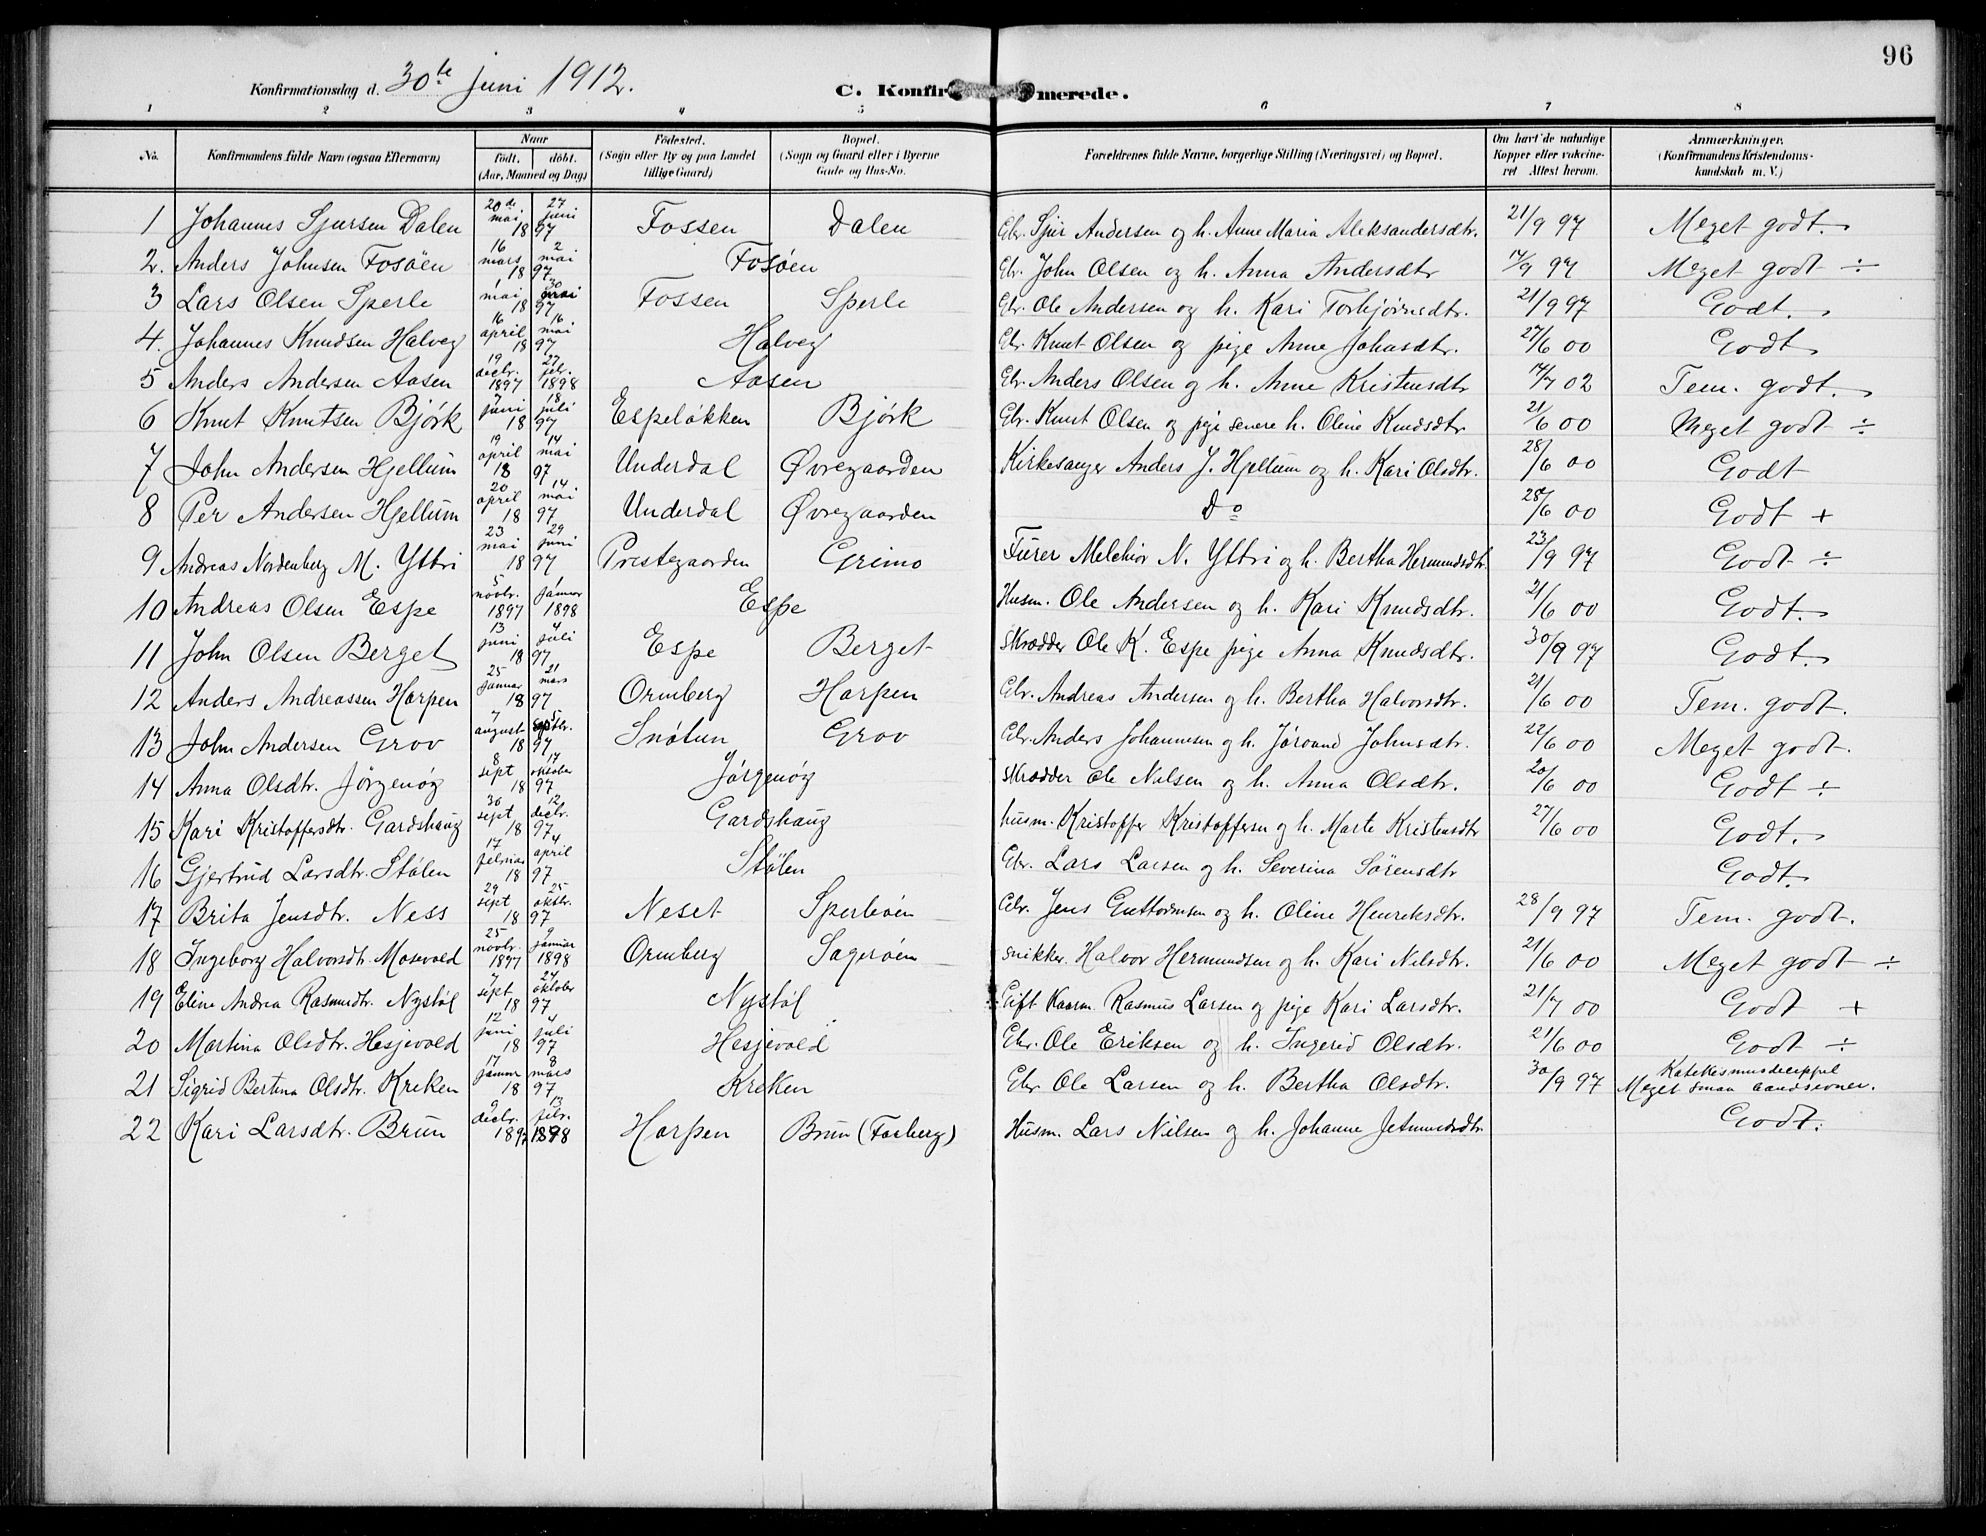 96
Konfirmationsdag d. 30te juni 1912. C. Konfirmerede.
1 2 3 4 5 6 7 8
No. Konfirmandens fulde Navn (ogsaa Efternavn) Naar født, døbt. (Aar, Maaned og Dag) Fødested. (Sogn eller By og paa Landet tillige Gaard) Bopæl. (Sogn og Gaard eller i Byerne Gade og Hus-No. Forældrenes fulde Navne, borgerlige Stilling (Næringsvei) og Bopæl. Om havt de naturlige Kopper eller vakcineret Attest herom. Anmærkninger. (Konfirmandens Kristendomskundskab m. V.)
1 Johannes Sjursen Dalen 20de mai 1897 27 juni Fossen Dalen Gbr. Sjur Andersen og h. Anne Maria Aleksandersdtr. 21/9 97 Meget godt.
2. Anders Johnsen Fosøen 16 mars 1897 2 mai Fosøen Gbr. John Olsen og h. Anna Andersdtr 17/9 97 Meget godt ÷
3 Lars Olsen Sperle 1 mai 1897 30 mai Fossen Sperle Gbr. Ole Andersen og h. Kari Torbjørnsdtr. 21/9 97 Godt.
4. Johannes Knudsen Halveg 16 april 1897 16 mai Halveg Gbr. Knut Olsen og pige Anne Johnsdtr. 27/6 00 Godt
5 Anders Andersen Aasen 19 decbr. 1897 27 febr. 1898 Aasen Gbr. Anders Olsen og h. Anne Kristensdtr 17/7 02 Tem. godt.
6 Knut Knutsen Bjørk 7 juni 1897 18 juli Espeløkken Bjørk Gbr. Knut Olsen og pige senere h. Oline Knudsdtr 21/6 00 Meget godt ÷
7 John Andersen Hjellum 19 april 1897 14 mai Underdal Øvregaarden Kirkesanger Anders J. Hjellum og h. Kari Olsdtr. 28/6 00 Godt
8 Per Andersen Hjellum 20 april 1897 14 mai Underdal Øvregaarden Do 28/6 00 Godt +
9 Andreas Nordenberg M. Yttri 23 mai 1897 29 juni Prestegaarden Grimo Furer Melchior N. Yttri og h. Bertha Hermundsdtr. 23/9 97 Godt ÷
10 Andreas Olsen Espe 5 novbr. 1897 1 januar 1898 Espe Husm. Ole Andersen og h. Kari Knudsdtr. 21/6 00 Godt.
11 John Olsen Berget 13 juni 1897 4 juli Espe Berget Skrædder Ole K. Espe pige Anna Knudsdtr. 30/9 97 Godt.
12 Anders Andreassen Horpen 25 januar 1897 21 mars Ormberg Horpen Gbr. Andreas Andersen og h. Bertha Halvorsdtr. 21/6 00 Tem. godt.
13 John Andersen Grov 7 august 1897 5 septbr. Snøtun Grov Gbr. Anders Johannesen og h. Jørand Johnsdtr. 22/6 00 Meget godt.
14 Anna Olsdtr. Jørgenøg 8 sept 1897 17 oktober Jørgenøg Skrædder Ole Nilsen og h. Anna Olsdtr. 20/6 00 Godt ÷
15 Kari Kristoffersdtr. Gardshaug 30 sept 1897 12 decbr. Gardshaug husm. Kristoffer Kristoffersen og h. Marte Kristensdtr 27/6 00 Godt.
16 Gjertrud Larsdtr. Stølen 17 februar 1897 4 april Stølen Gbr. Lars Larsen og h. Severina Sørensdtr Godt.
17 Brita Jensdtr. Ness 29 sept 1897 25 oktbr. Neset Sperleøen Gbr. Jens Guttormsen og h. Oline Henriksdtr. 28/9 97 Tem. godt.
18 Ingeborg Halvorsdtr. Mosevold 25 novbr. 1897 9 januar 1898 Ormberg Sagerøen snikker Halvor Hermundsen og h. Kari Nilsdtr. 21/6 00 Meget godt ÷
19 Eline Andrea Rasmusdtr. Nystøl 7 sept 1897 24 oktober Nystøl Gift Kaarm. Rasmus Larsen og pige Kari Larsdtr. 21/7 00 Godt +
20 Martina Olsdtr. Hesjevold 12 juni 1897 4 juli Hesjevold Gbr. Ole Eriksen og h. Ingerid Olsdtr. 21/6 00 Godt ÷
21 Sigrid Bertina Olsdtr. Kreken 17 januar 1897 8 mars Kreken Gbr Ole Larsen og h. Bertha Olsdtr. 30/9 97 Meget smaa aandsevner.
22 Kari Larsdtr. Brun 9 decbr. 1897 13 febr. 1898 Horpen Brun (Fosberg) Husm. Lars Nilsen og h. Johanne Jetmundsdtr Godt.